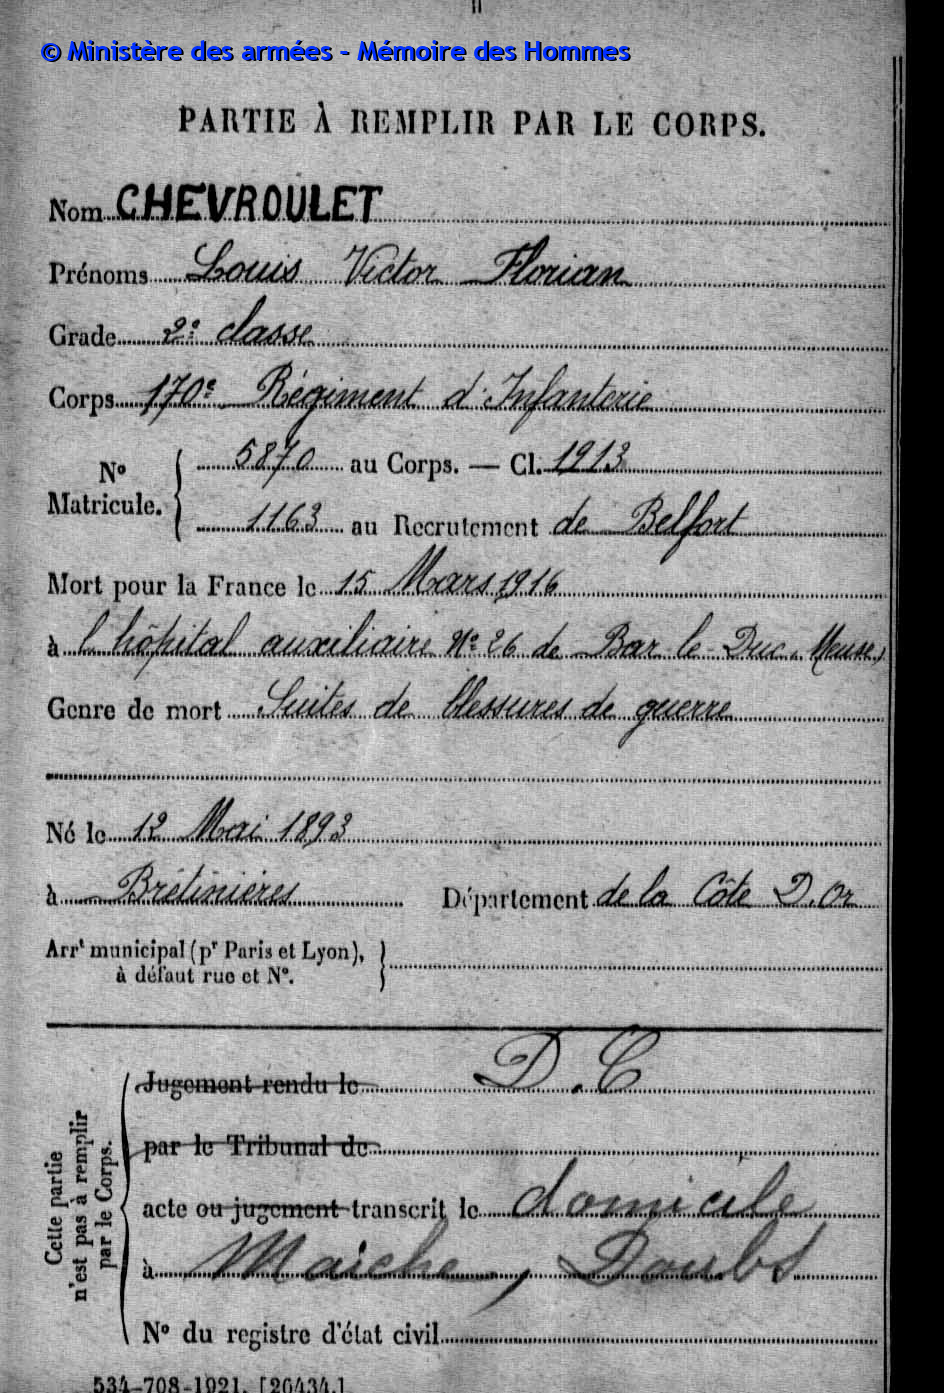 © Ministère des armées - Mémoire des Hommes
PARTIE À REMPLIR PAR LE CORPS.
Nom CHEVROULET
Prénoms Louis Victor Florian
Grade 2e classe
Corps 170e Régiment d'Infanterie
No Matricule. { 5870 au Corps. — Cl. 1913
1163 au Recrutement de Belfort
Mort pour la France le 15 Mars 1916
à l'hôpital auxiliaire No 26 de Bar-le-Duc (Meuse)
Genre de mort Suites de blessures de guerre
Né le 12 Mai 1893
à Brétinières Département de la Côte D'Or
Arrt municipal (pr Paris et Lyon),
à défaut rue et No. }
Cette partie n'est pas à remplir par le Corps.
Jugement rendu le D.C
par le Tribunal de
acte ou jugement transcrit le domicile
à Maiche, Doubs
No du registre d'état civil
534-708-1921. [26434.]